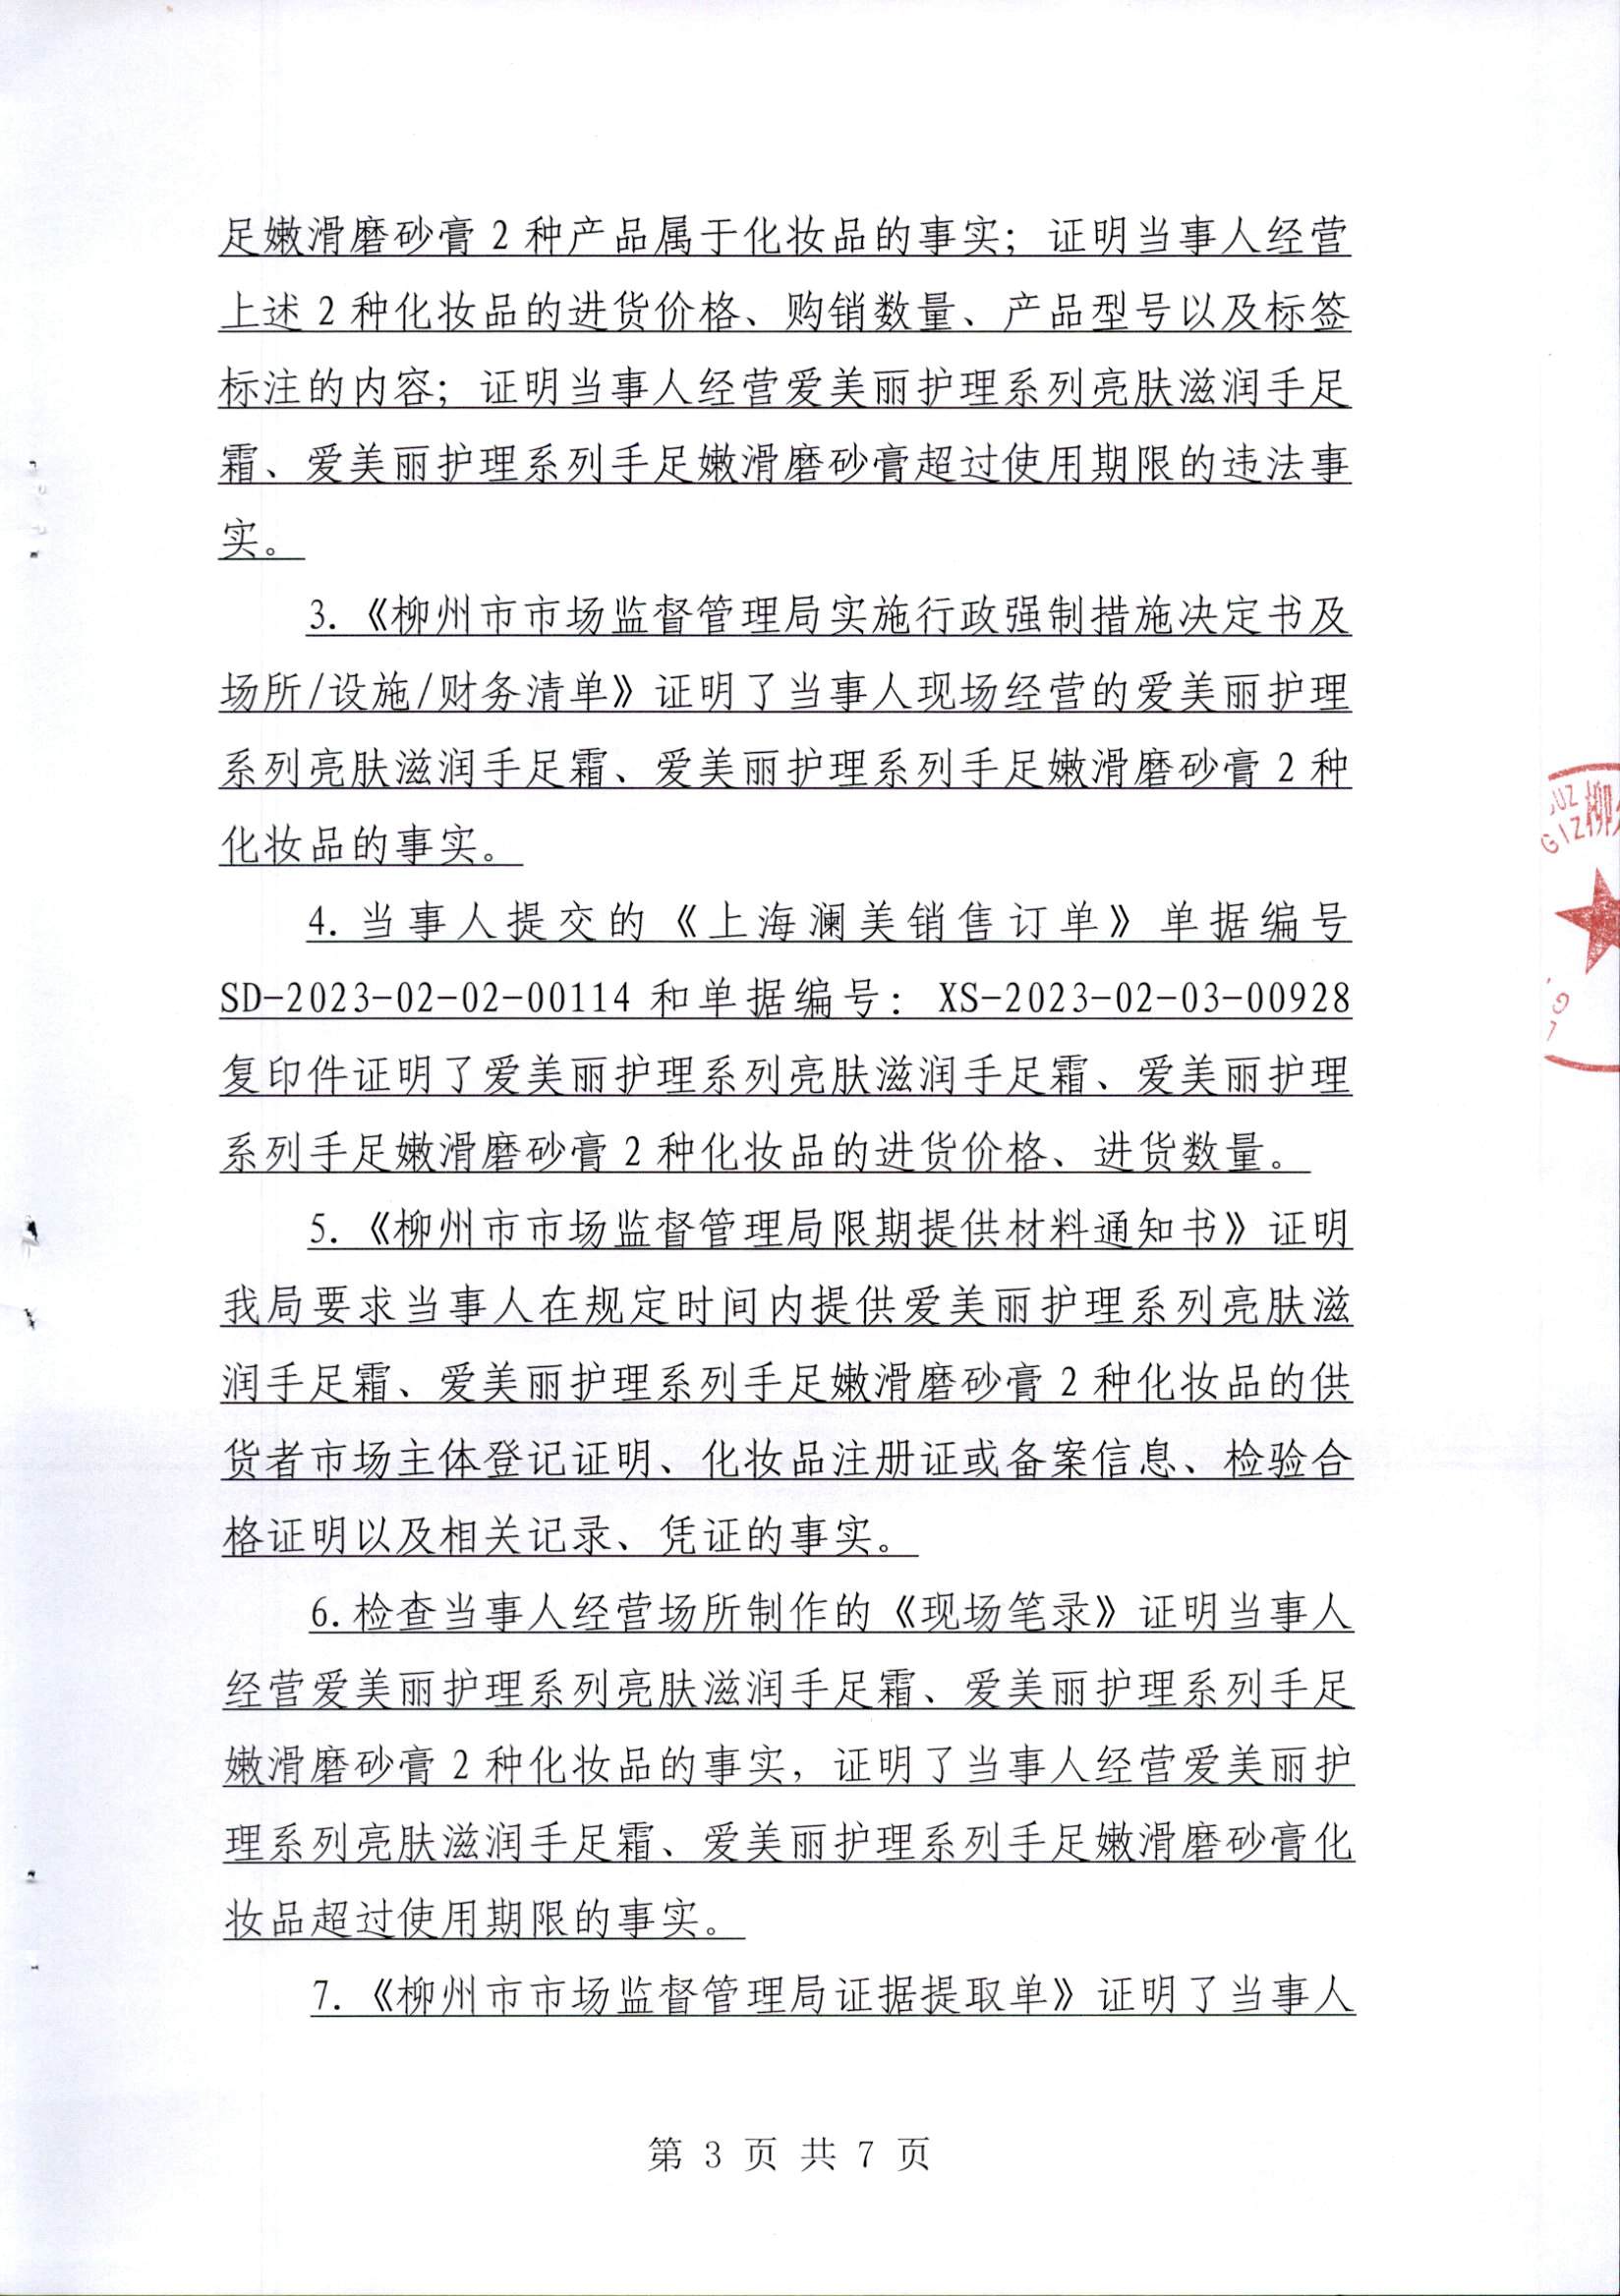 足嫩滑磨砂膏 2 种产品属于化妆品的事实；证明当事人经营
上述 2 种化妆品的进货价格、购销数量、产品型号以及标签
标注的内容；证明当事人经营爱美丽护理系列亮肤滋润手足
霜、爱美丽护理系列手足嫩滑磨砂膏超过使用期限的违法事
实。
3.《柳州市市场监督管理局实施行政强制措施决定书及
场所/设施/财务清单》证明了当事人现场经营的爱美丽护理
系列亮肤滋润手足霜、爱美丽护理系列手足嫩滑磨砂膏 2 种
化妆品的事实。
4. 当事人提交的《上海澜美销售订单》单据编号
SD-2023-02-02-00114 和单据编号： XS-2023-02-03-00928
复印件证明了爱美丽护理系列亮肤滋润手足霜、爱美丽护理
系列手足嫩滑磨砂膏 2 种化妆品的进货价格、进货数量。
5.《柳州市市场监督管理局限期提供材料通知书》证明
我局要求当事人在规定时间内提供爱美丽护理系列亮肤滋
润手足霜、爱美丽护理系列手足嫩滑磨砂膏 2 种化妆品的供
货者市场主体登记证明、化妆品注册证或备案信息、检验合
格证明以及相关记录、凭证的事实。
6. 检查当事人经营场所制作的《现场笔录》证明当事人
经营爱美丽护理系列亮肤滋润手足霜、爱美丽护理系列手足
嫩滑磨砂膏 2 种化妆品的事实，证明了当事人经营爱美丽护
理系列亮肤滋润手足霜、爱美丽护理系列手足嫩滑磨砂膏化
妆品超过使用期限的事实。
7.《柳州市市场监督管理局证据提取单》证明了当事人
第 3 页 共 7 页
UZ
GIZ
柳